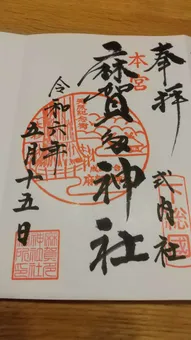 奉拝
式内社
下総國
本宮
麻賀多神社
令和六年
五月十五日